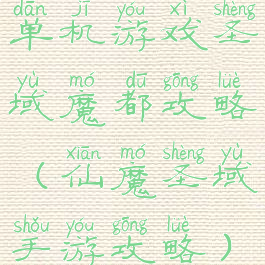 dān jī yóu xì shèng
单机游戏圣
yù mó dū gōng lüè
域魔都攻略
xiān mó shèng yù
（仙魔圣域
shǒu yóu gōng lüè
手游攻略）